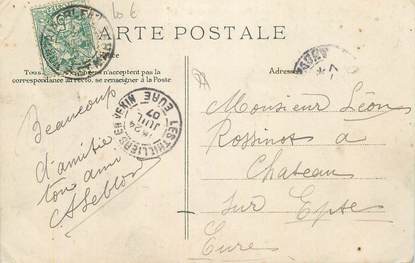 10 €
CARTE POSTALE
Tous les pays étrangers n'acceptent pas la
correspondance au recto, se renseigner à la Poste
Adresse
LES THILLIERS-EN-VEXIN
EURE
24
JUIL
07
Beaucoup
d'amitié
ton ami
Monsieur Léon
Rossinot à
Chateau
sur Epte
Eure